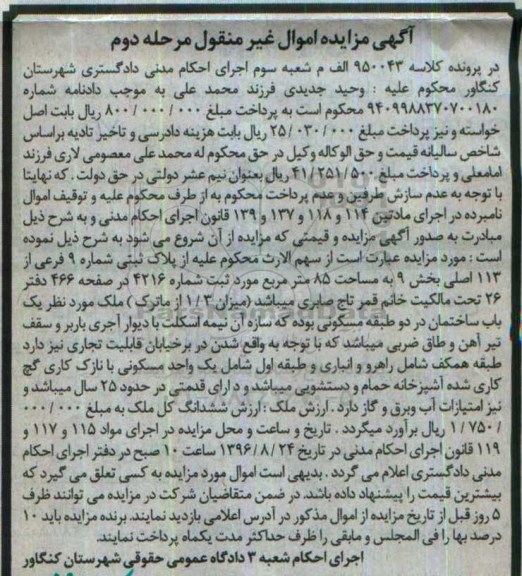 آگهی مزایده اموال غیر منقول مرحله دوم
در پرونده کلاسه ۹۵۰۰۴۳ الف م شعبه سوم اجرای احکام مدنی دادگستری شهرستان
کنگاور محکوم علیه : وحید جدیدی فرزند محمد علی به موجب دادنامه شماره
۹۴۰۹۹۸۸۳۷۰۷۰۰۱۸۰ محکوم است به پرداخت مبلغ ۸۰۰/۰۰۰/۰۰۰ ریال بابت اصل
خواسته و نیز پرداخت مبلغ ۲۵/۰۳۰/۰۰۰ ریال بابت هزینه دادرسی و تاخیر تادیه براساس
شاخص سالیانه قیمت و حق الوکاله وکیل در حق محکوم له محمد علی معصومی لاری فرزند
امامعلی و پرداخت مبلغ ۴۱/۲۵۱/۵۰۰ ریال بعنوان نیم عشر دولتی در حق دولت . که نهایتا
با توجه به عدم سازش طرفین و عدم پرداخت محکوم به از طرف محکوم علیه و توقیف اموال
نامبرده در اجرای مادتین ۱۱۴ و ۱۱۸ و ۱۳۷ و ۱۳۹ قانون اجرای احکام مدنی و به شرح ذیل
مبادرت به صدور آگهی مزایده و قیمتی که مزایده از آن شروع می شود به شرح ذیل نموده
است : مورد مزایده عبارت است از سهم الارث محکوم علیه از پلاک ثبتی شماره ۹ فرعی از
۱۱۳ اصلی بخش ۹ به مساحت ۸۵ متر مربع مورد ثبت شماره ۴۲۱۶ در صفحه ۴۶۶ دفتر
۲۶ تحت مالکیت خانم قمر تاج صابری میباشد (میزان ۱/۳ از ماترک ) ملک مورد نظر یک
باب ساختمان در دو طبقه مسکونی بوده که سازه آن نیمه اسکلت با دیوار آجری باربر و سقف
تیر آهن و طاق ضربی میباشد که با توجه به واقع شدن در برخیابان قابلیت تجاری نیز دارد
طبقه همکف شامل راهرو و انباری و طبقه اول شامل یک واحد مسکونی با نازک کاری گچ
کاری شده آشپزخانه حمام و دستشویی میباشد و دارای قدمتی در حدود ۲۵ سال میباشد و
نیز امتیازات آب وبرق و گاز دارد . ارزش ملک : ارزش ششدانگ کل ملک به مبلغ ۰۰۰/۰۰۰
/۱/۷۵۰ ریال برآورد میگردد . تاریخ و ساعت و محل مزایده در اجرای مواد ۱۱۵ و ۱۱۷ و
۱۱۹ قانون اجرای احکام مدنی در تاریخ ۱۳۹۶/۸/۲۴ ساعت ۱۰ صبح در دفتر اجرای احکام
مدنی دادگستری اعلام می گردد . بدیهی است اموال مورد مزایده به کسی تعلق می گیرد که
بیشترین قیمت را پیشنهاد داده باشد. در ضمن متقاضیان شرکت در مزایده می توانند ظرف
۵ روز قبل از تاریخ مزایده از اموال مذکور در آدرس اعلامی بازدید نمایند. برنده مزایده باید ۱۰
درصد بها را فی المجلس و مابقی را ظرف حداکثر مدت یکماه پرداخت نمایند.
اجرای احکام شعبه ۳ دادگاه عمومی حقوقی شهرستان کنگاور